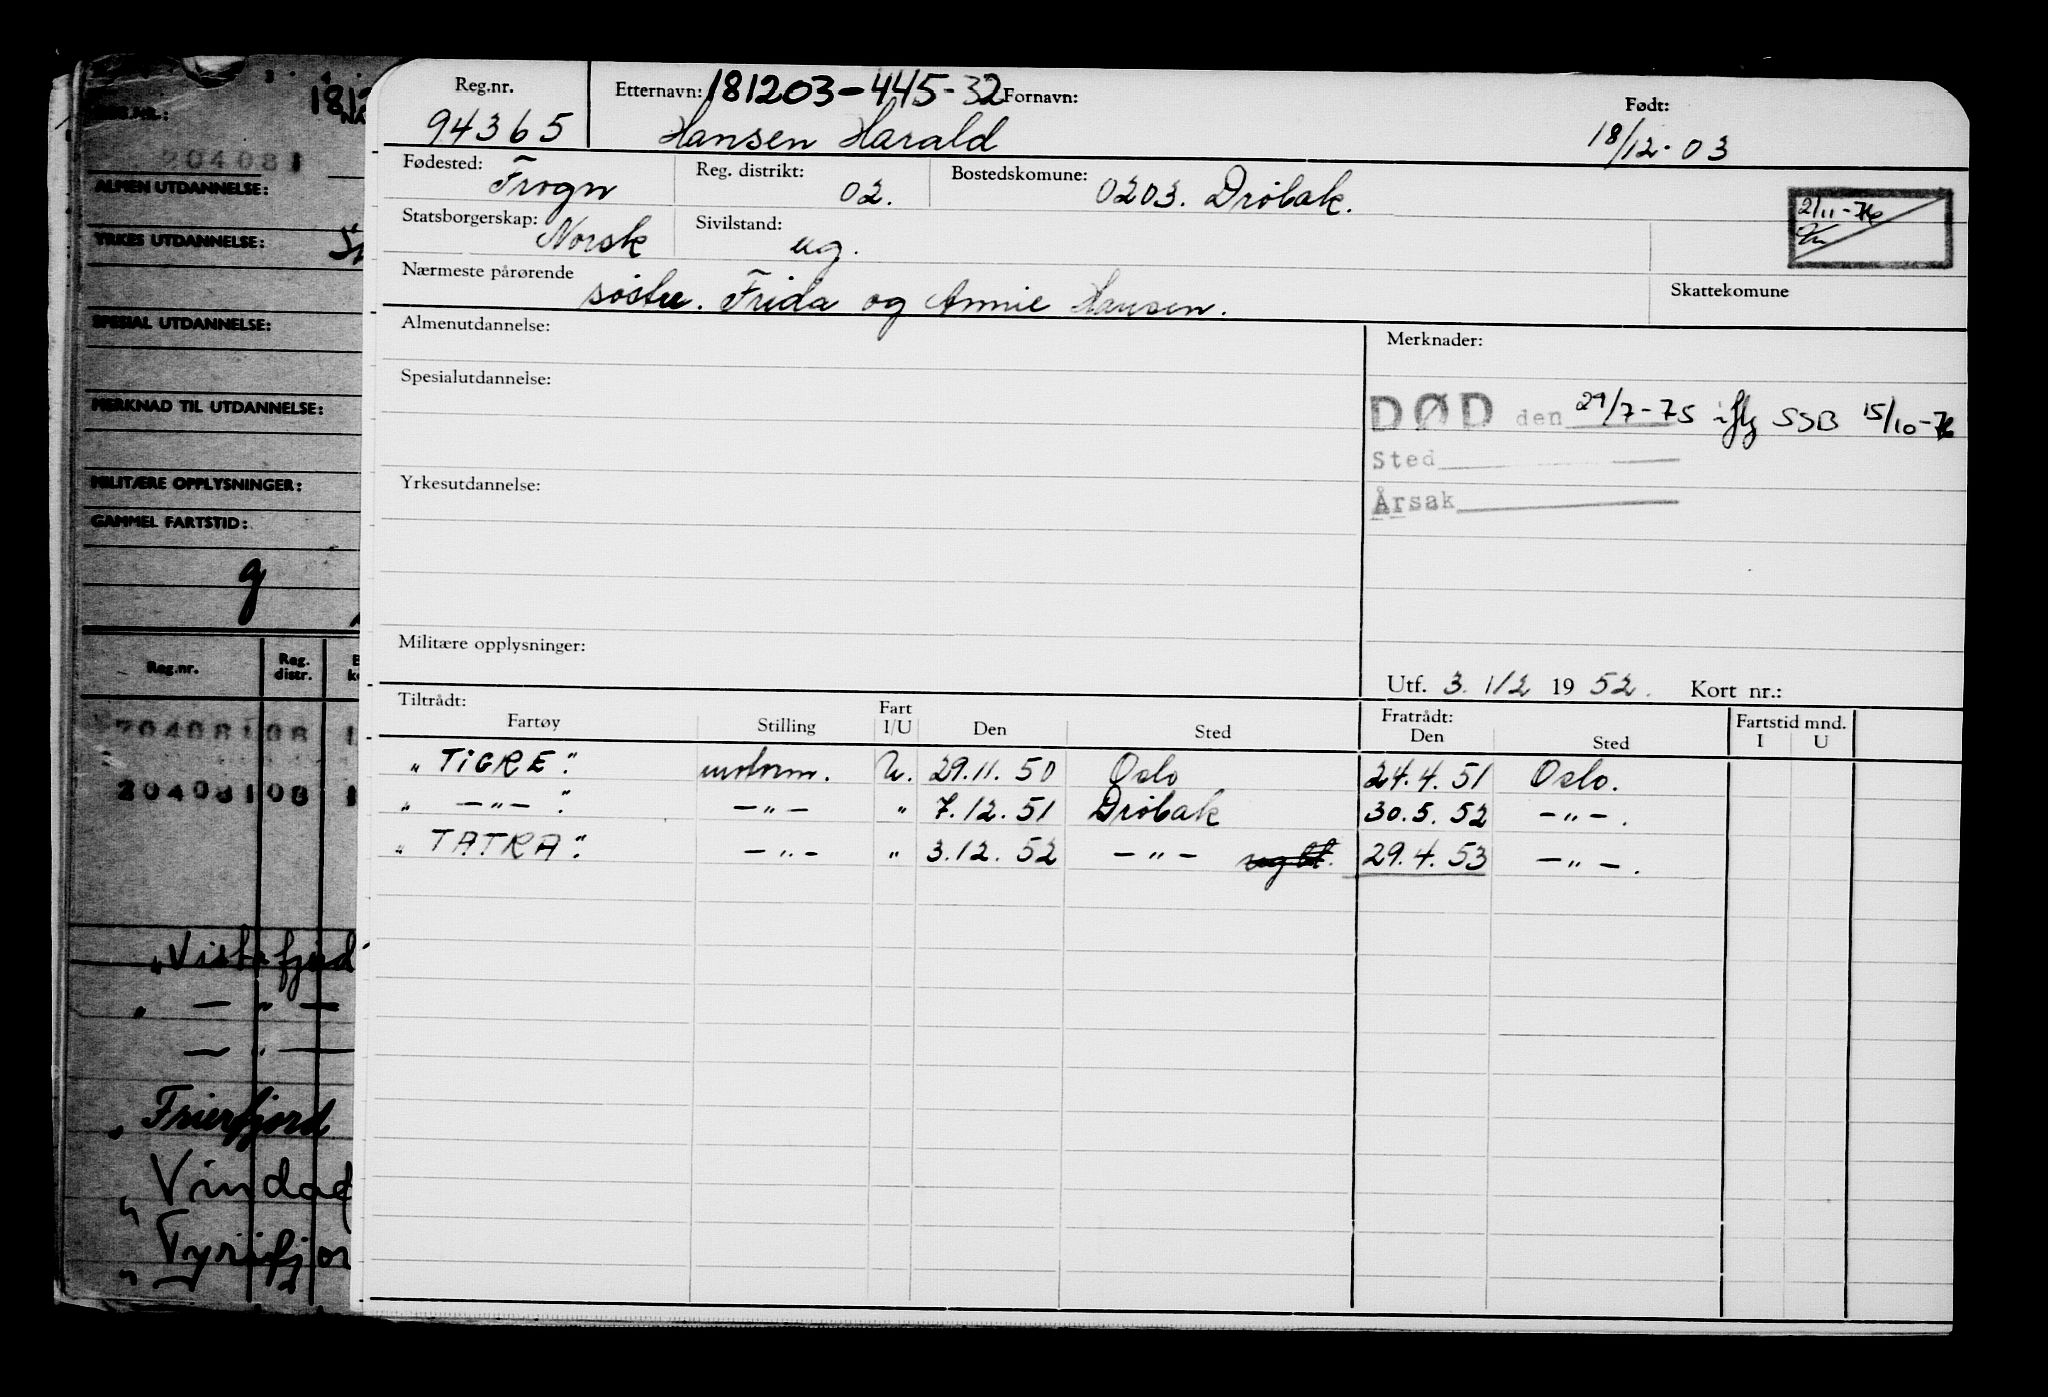 3 4
1812
REG.NR.:
NA
204081
ALMEN UTDANNELSE:
YRKES UTDANNELSE:
SPESIAL UTDANNELSE:
MERKNAD TIL UTDANNELSE:
MILITÆRE OPPLYSNINGER:
GAMMEL FARTSTID:
g
Reg.nr.
Reg. distr.
20408108 1
20408108 1
„Vistafjord
„ — „ —
— „ —
„ Frierfjord
„ Vindaf
„ Tyrifjor
Reg.nr. Etternavn: 181203-445-32 Fornavn: Født:
94365 Hansen Harald 18/12-03
Fødested: Frogn Reg. distrikt: 02. Bostedskomune: 0203. Drøbak.
Statsborgerskap: Norsk Sivilstand: ug. 2/11-76
Nærmeste pårørende søstre. Frida og Annie Hansen. Skattekomune
Almenutdannelse: Merknader:
Spesialutdannelse:
DØD den 29/7-75 iflg SSB 15/10-76
Sted
Årsak
Yrkesutdannelse:
Militære opplysninger:
Utf. 3. 1/2 1952. Kort nr.:
Tiltrådt: Fratrådt: Fartstid mnd.
Fartøy Stilling Fart I/U Den Sted Den Sted I U
„ TIGRE". motorm. U. 29.11.50 Oslo 24.4.51 Oslo.
„ —„— ". —„— „ 7.12.51 Drøbak 30.5.52 —„—.
„ TATRA". —„— „ 3.12.52 —„— 29.4.53 —„—.